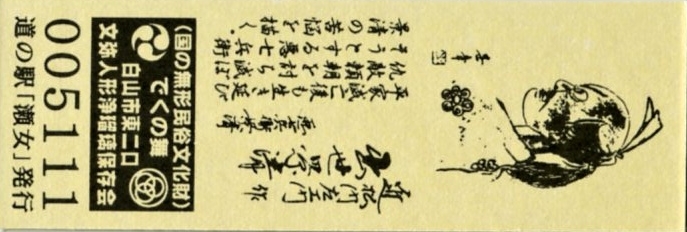 近松門左エ門 作
出世景清
平家滅亡後も生き延び
仇敵頼朝を討ち滅ぼ
そうとする悪七兵衛
景清の苦悩を描く。
(国の無形民俗文化財)
でくの舞
白山市東二口
文弥人形浄瑠璃保存会
005111
道の駅「瀬女」発行